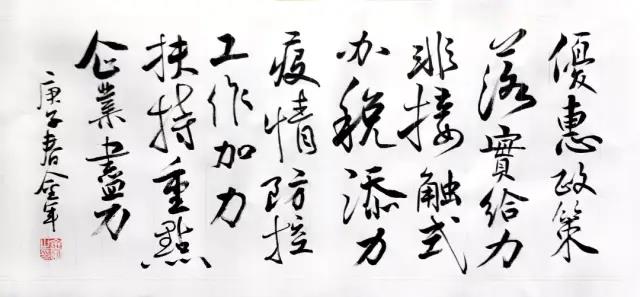 優惠政策
落實给力
非接触式
办税添力
疫情防控
工作加力
扶持重點
企業盡力
庚子春金年